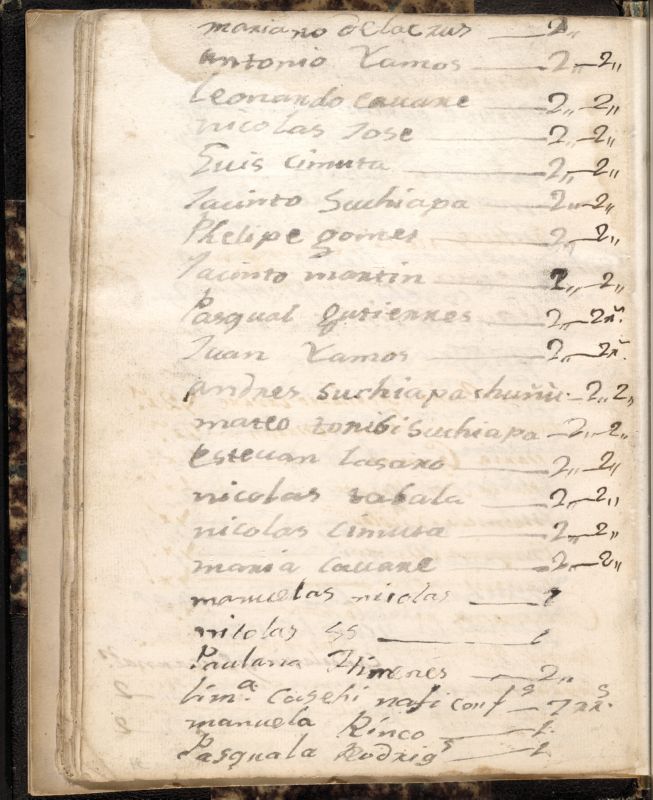 mariano delacrus — 2,,
antonio Ramos — 2,, — 2,,
Leonardo cauare — 2,, — 2,,
nicolas Jose — 2,, — 2,,
Luis cimuta — 2,, — 2,,
Jacinto Suchiapa — 2,, — 2,,
Phelipe gomes — 2,, — 2,,
Jacinto martin — 2,, — 2,,
Pasqual gutierres — 2,, — 2r̃s.
Juan Ramos — 2,, — 2r̃s.
andres suchiapa chuñù — 2,, 2,,
mateo toribi Suchiapa — 2,, — 2,,
esteuan lasaro — 2,, — 2,,
nicolas tabala — 2,, — 2,,
nicolas cimuta — 2,, — 2,,
maria cauare — 2,, — 2,,
manuelas nicolas — 1
nicolas ss — 1
Paulana Himenes — 2,,
lim.ª casehi nafi conf.s — 7 rr.s
manuela Rinco — 1
Pasquala Rodrig.s — 1